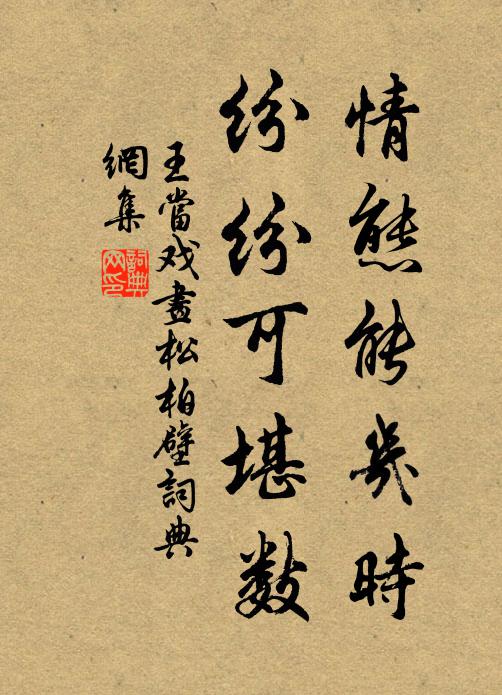 情態能幾時
紛紛可堪數
王當戏畫松柏壁詞典
網集
詞典
网印